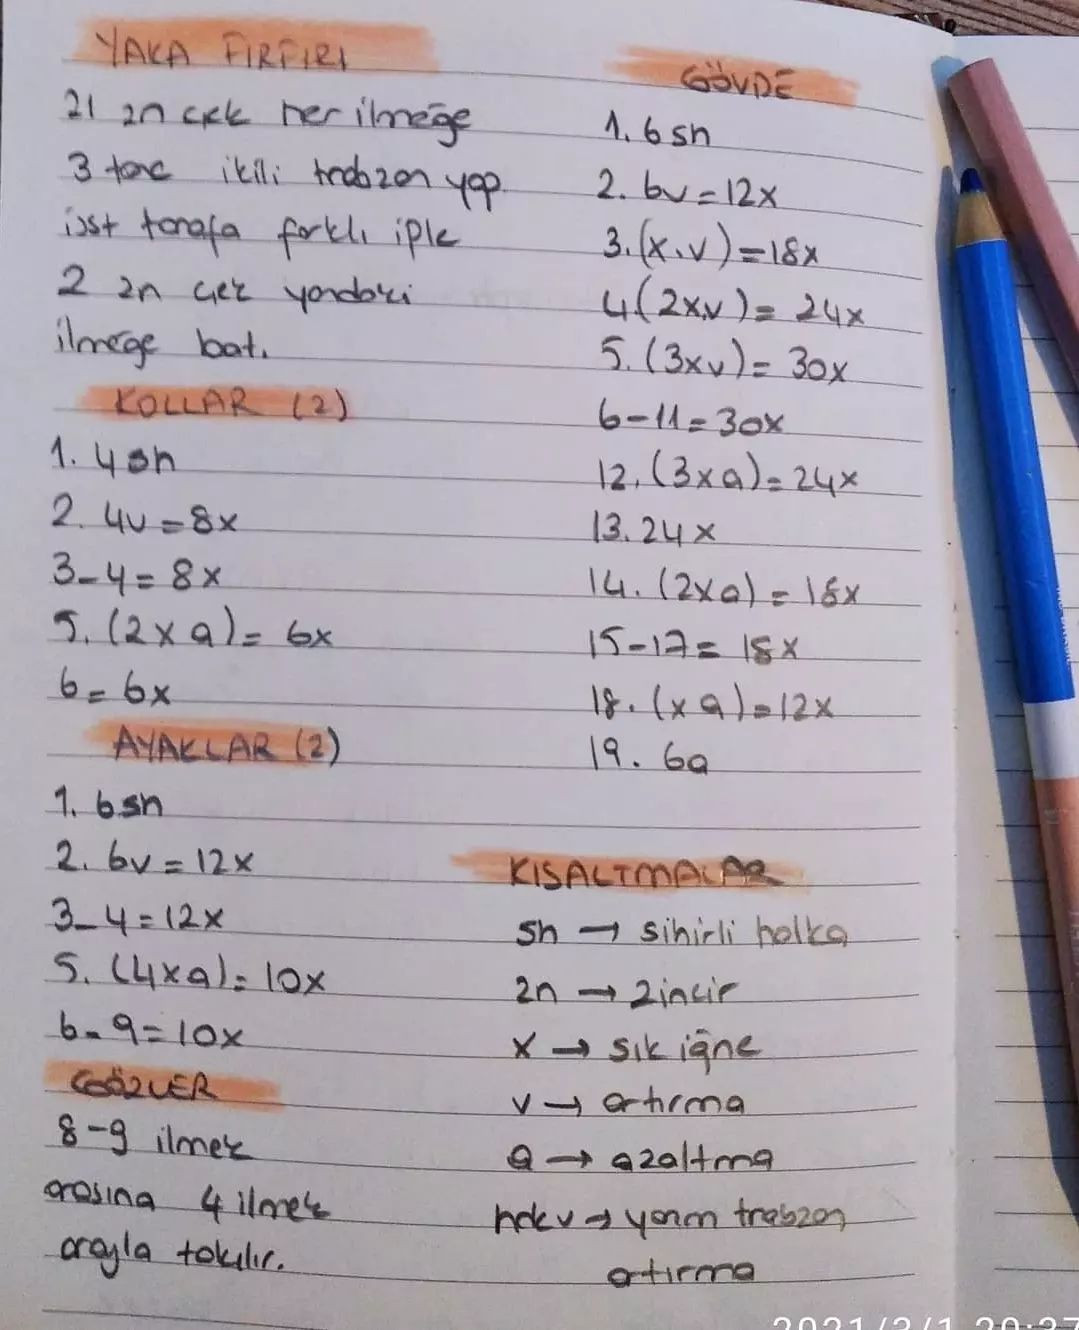 YAKA FIRFIRI
21 zn çek her ilmeğe
3 tane ikili trabzan yap
üst tarafa farklı iple
2 zn çek yandaki
ilmeğe bat.
KOLLAR (2)
1. 4sh
2. 4v = 8x
3-4 = 8x
5. (2xa) = 6x
6 = 6x
AYAKLAR (2)
1. 6sh
2. 6v = 12x
3-4 = 12x
5. (4xa) = 10x
6-9 = 10x
GÖZLER
8-9 ilmek
arasına 4 ilmek
arayla takılır.
GÖVDE
1. 6sh
2. 6v = 12x
3. (x.v) = 18x
4 (2x,v) = 24x
5. (3xv) = 30x
6-11 = 30x
12. (3xa) = 24x
13. 24x
14. (2xa) = 18x
15-17 = 18x
18. (xa) = 12x
19. 6a
KISALTMALAR
sh → sihirli halka
zn → zincir
x → sık iğne
v → artırma
a → azaltma
hdkv → yarım trabzan
artırma
2021/3/1 20:37